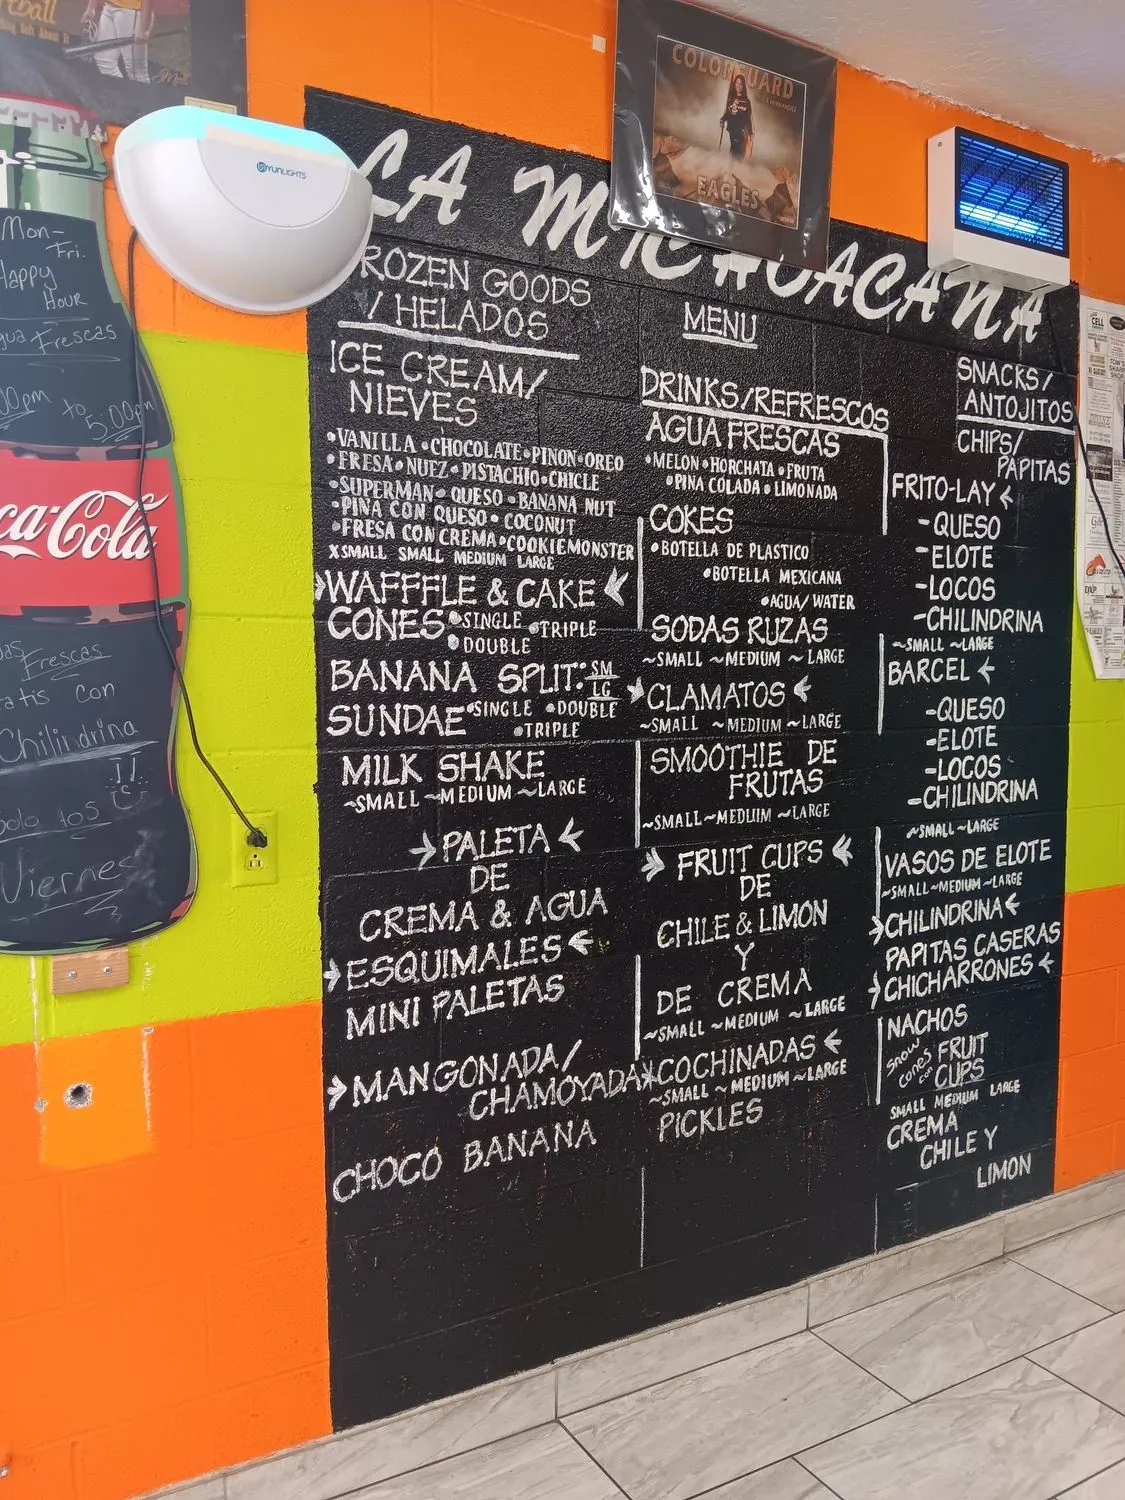 Mon-
Fri.
Happy
Hour
Frescas
to
5:00pm
Coca-Cola
Frescas
con
Chilindrina
Viernes
YUNLIGHTS
COLORGUARD
HERNANDEZ
EAGLES
LA MICHOACANA
FROZEN GOODS
/ HELADOS
ICE CREAM/
NIEVES
•VANILLA •CHOCOLATE•PINON•OREO
•FRESA•NUEZ•PISTACHIO•CHICLE
•SUPERMAN•QUESO•BANANA NUT
•PINA CON QUESO•COCONUT
•FRESA CON CREMA•COOKIEMONSTER
XSMALL SMALL MEDIUM LARGE
WAFFFLE & CAKE
CONES •SINGLE •TRIPLE
•DOUBLE
BANANA SPLIT: SM
LG
SUNDAE •SINGLE •DOUBLE
•TRIPLE
MILK SHAKE
~SMALL ~MEDIUM ~LARGE
PALETA
DE
CREMA & AGUA
ESQUIMALES
MINI PALETAS
MANGONADA/
CHAMOYADA
CHOCO BANANA
MENU
DRINKS/REFRESCOS
AGUA FRESCAS
•MELON•HORCHATA•FRUTA
•PINA COLADA•LIMONADA
COKES
•BOTELLA DE PLASTICO
•BOTELLA MEXICANA
•AGUA/WATER
SODAS RUZAS
~SMALL ~MEDIUM ~LARGE
CLAMATOS
~SMALL ~MEDIUM ~LARGE
SMOOTHIE DE
FRUTAS
~SMALL~MEDIUM ~LARGE
FRUIT CUPS
DE
CHILE & LIMON
Y
DE CREMA
~SMALL ~MEDIUM ~LARGE
COCHINADAS
~SMALL ~MEDIUM ~LARGE
PICKLES
SNACKS/
ANTOJITOS
CHIPS/
PAPITAS
FRITO-LAY
-QUESO
-ELOTE
-LOCOS
-CHILINDRINA
~SMALL ~LARGE
BARCEL
-QUESO
-ELOTE
-LOCOS
-CHILINDRINA
~SMALL ~LARGE
VASOS DE ELOTE
~SMALL~MEDIUM~LARGE
CHILINDRINA
PAPITAS CASERAS
CHICHARRONES
NACHOS
Snow
Cones
con
FRUIT
CUPS
SMALL MEDIUM LARGE
CREMA
CHILE Y
LIMON